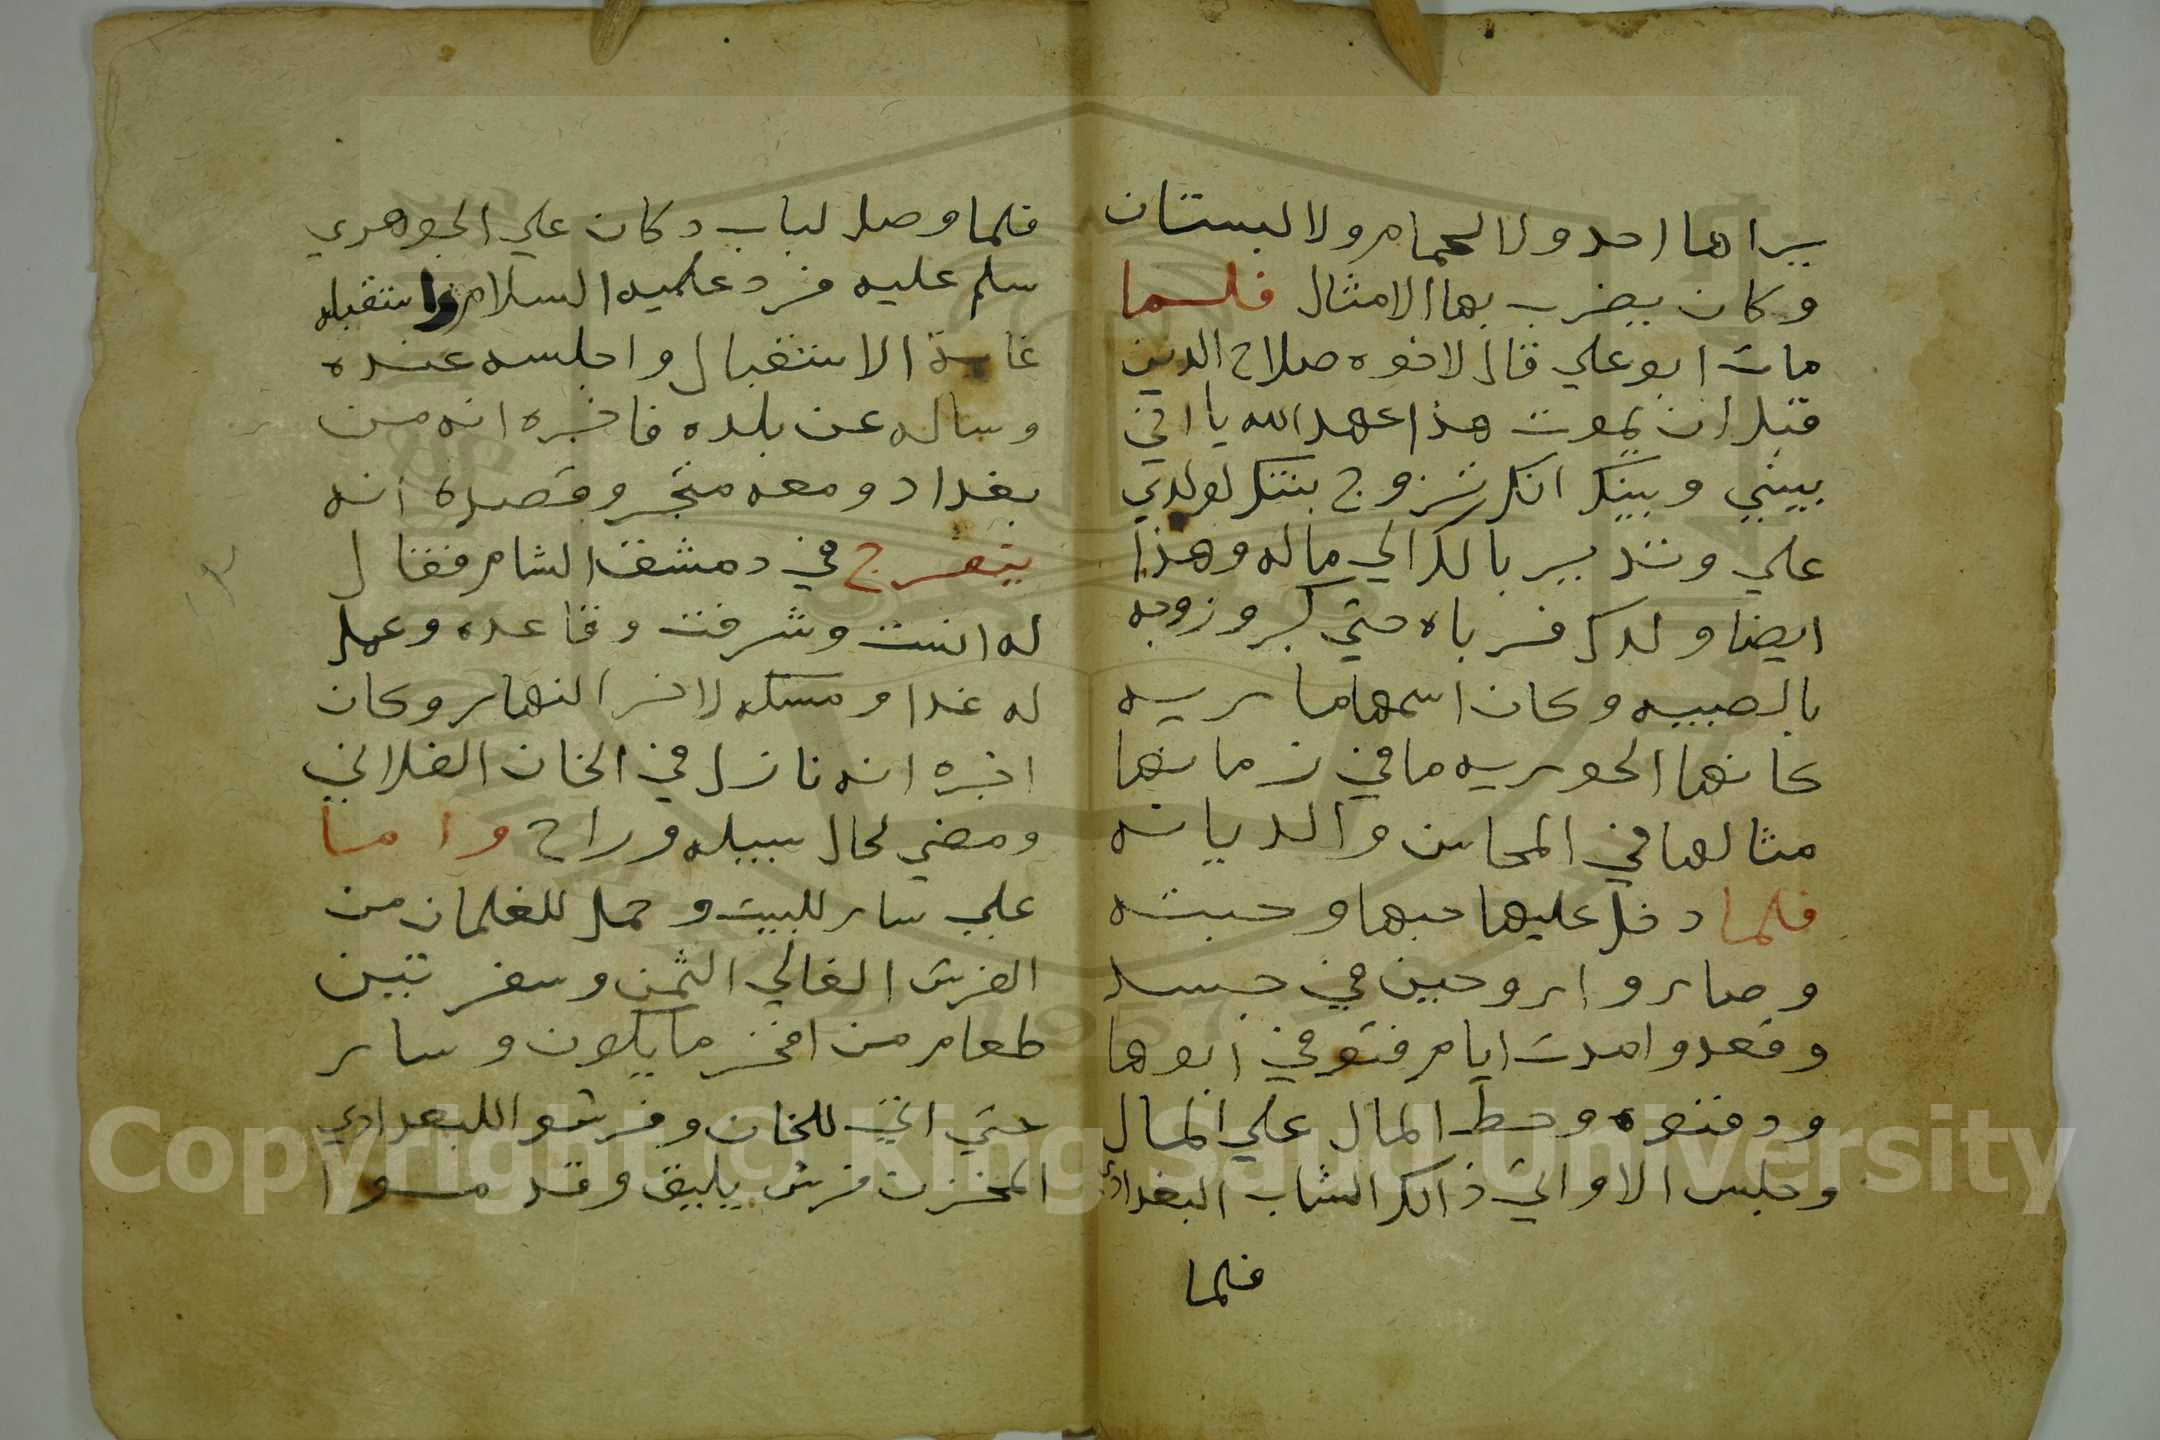 يراها احد ولا لحمام ولا لبستان
وكان يضرب بها الامثال فلما
مات ابو علي قال لاخوه صلاح الدين
قبل ان يموت هذا عهد الله يا اخي
بيني وبينك انك تزوج بنتك لولدي
علي وتدير بالك الي ماله وهذا
ايضا ولدك فرباه حتي كبر وزوجه
بالصبيه وكان اسمها ماريه
كانها الحوريه ما في زمانها
مثالها في المحاسن والديانه
فلما دخل عليها حبها وحبته
وصاروا روحين في جسد
وقعدوا مدت ايام فتوفي ابوها
ودفنوه وحط المال علي المال
وجلس الا واتي ذالك الشاب البغدادي
فلما
فلما وصل لباب دكان علي الجوهري
سلم عليه فرد عليه السلام واستقبله
غاية الاستقبال واجلسه عنده
وساله عن بلده فاخبره انه من
بغداد ومعه متجر وقصده انه
يتفرج في دمشق الشام فقال
له انست وشرفت وقاعده وعمل
له غدا ومسكه لاخر النهار وكان
اخبره انه نازل في الخان الفلاني
ومضي لحال سبيله وراح واما
علي سار للبيت وحمل للغلمان من
الفرش الغالي الثمن وسفرتين
طعام من افخر ما يكون وسار
حتي اتي للخان وفرشوا للبغدادي
المخزن فرش يليق وقدموا
١٣
Copyright © King Saud University
1957